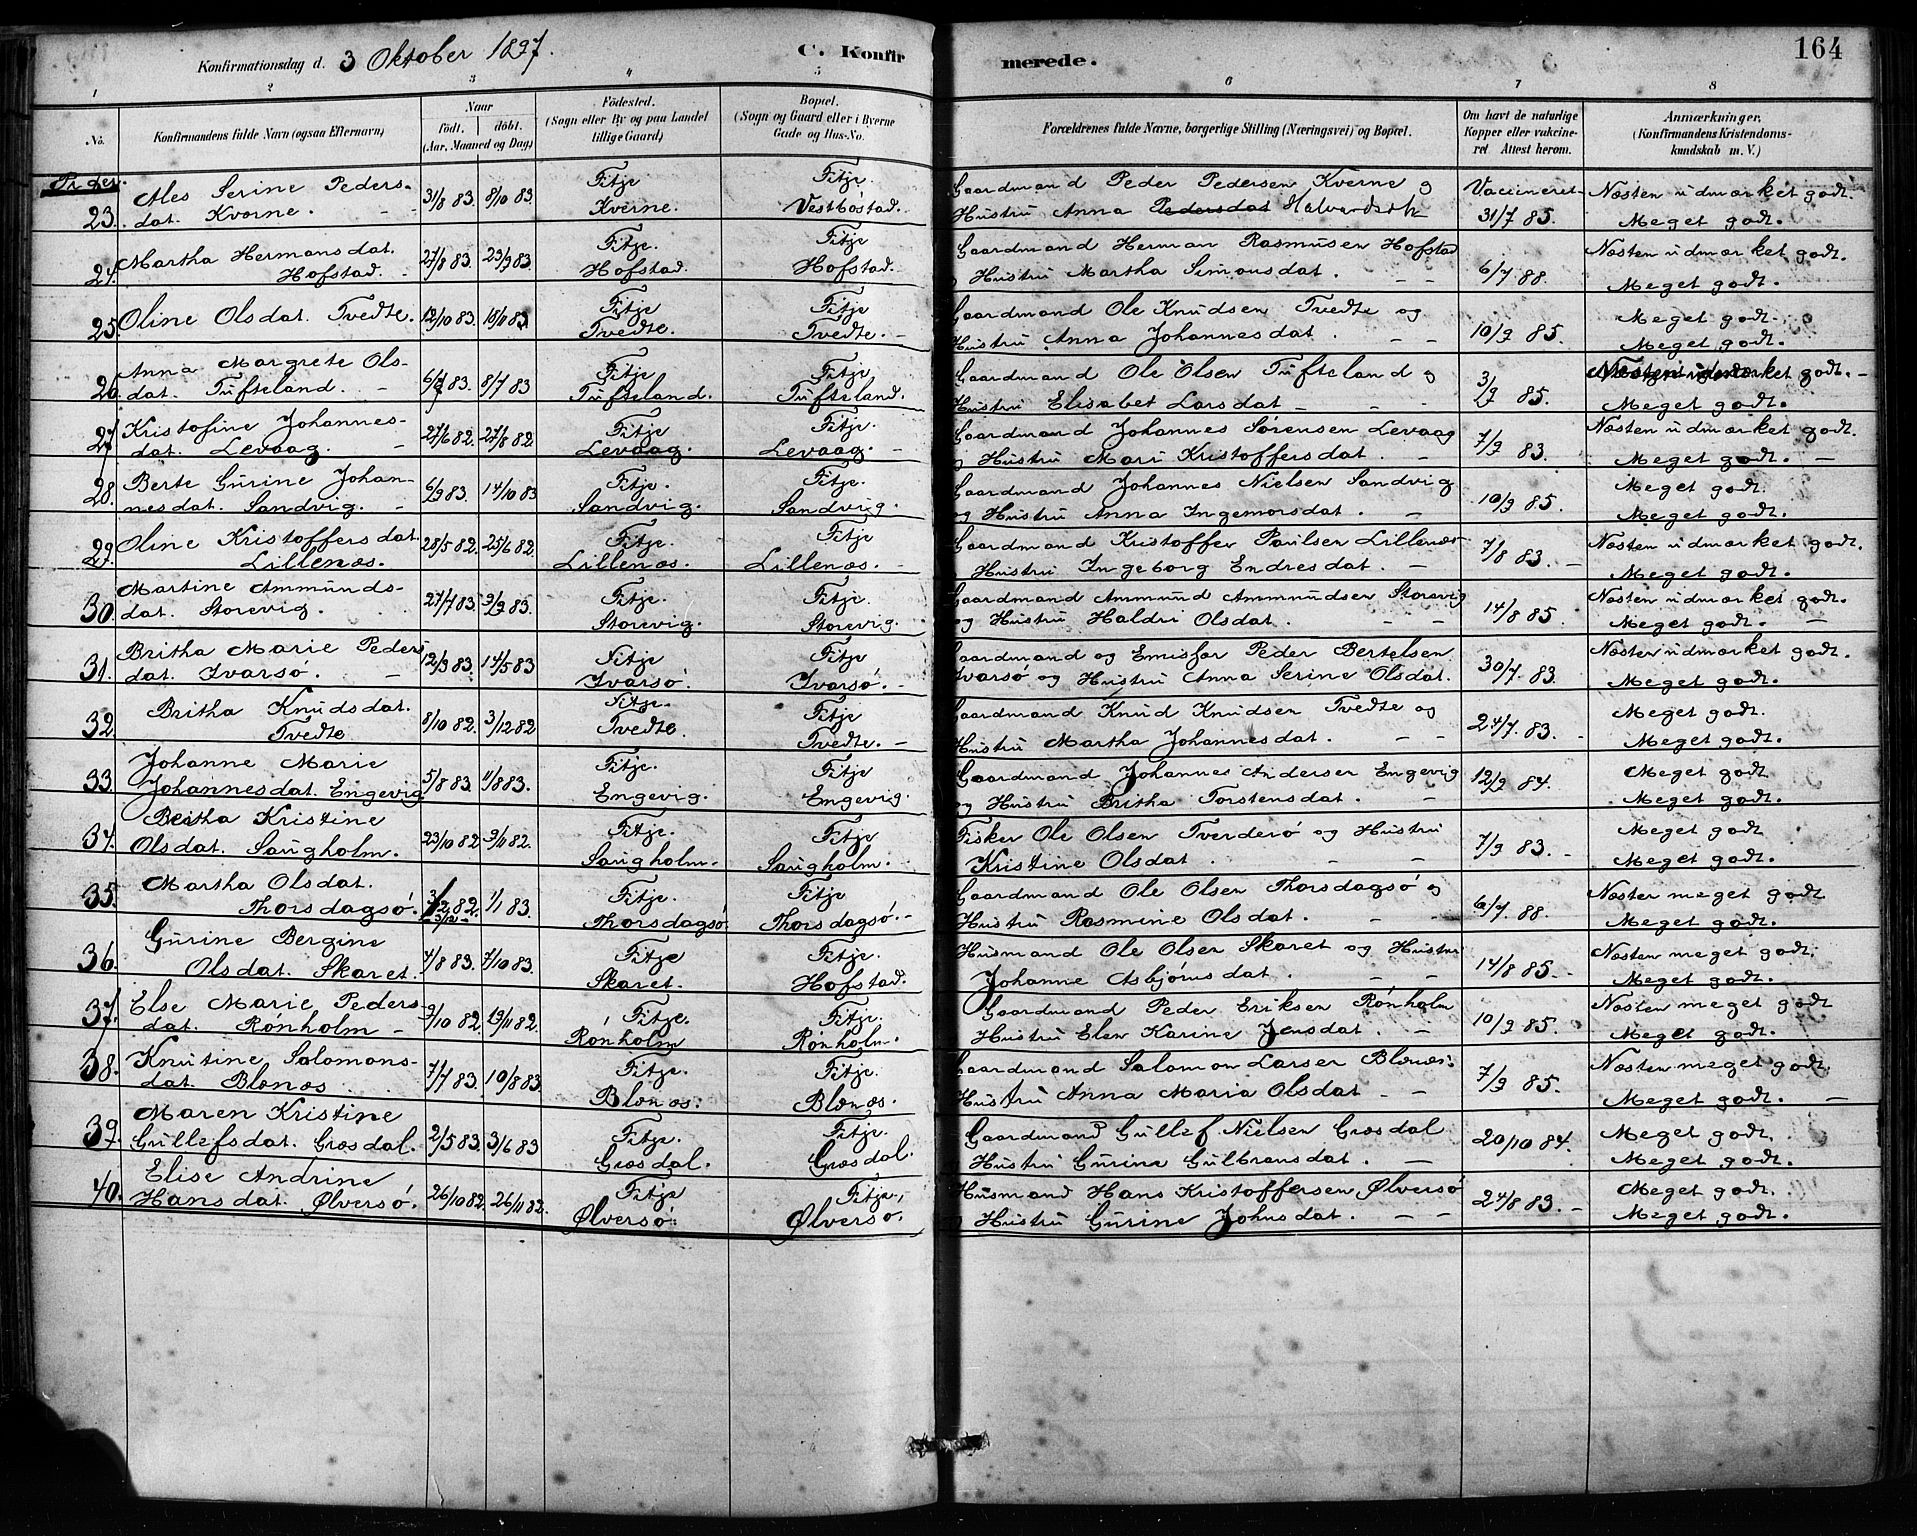 164
Konfirmationsdag d. 3 Oktober 1897.
C. Konfir merede.
1 2 3 4 5 6 7 8
No. Konfirmandens fulde Navn (ogsaa Efternavn) Naar født. døbt. (Aar, Maaned og Dag) Fødested. (Sogn eller By og paa Landet tillige Gaard) Bopæl. (Sogn og Gaard eller i Byerne Gade og Hus-No. Forældrenes fulde Navne, borgerlige Stilling (Næringsvei) og Bopæl. Om havt de naturlige Kopper eller vakcineret Attest herom. Anmærkninger. (Konfirmandens Kristendomskundskab m. V.)
Ales Serine Peders- 31/8 83. 8/10 83. Fitje Fitje. Gaardmand Peder Pedersen Kverne og Vaccineret Næsten udmærket godt.
23. dat. Kverne. Kverne. Vestbøstad. Hustru Anna Pedersdat Halvardsdt 31/7 85. Meget godt.
Martha Hermansdat. 27/8 83. 23/9 83. Fitje. Fitje Gaardmand Herman Rasmusen Hofstad Næsten udmærket godt.
24. Hofstad. Hofstad. Hofstad. Hustru Martha Simonsdat. 6/7 88. Meget godt.
25. Oline Olsdat. Tvedte. 12/10 83. 18/11 83. Fitje Fitje Gaardmand Ole Knudsen Tvedte og Meget godt.
Tvedte. Tvedte. Hustru Anna Johannesdat. 10/9 85. Meget godt.
Anna Margrete Ols- 8/7 83 Fitje Fitje Gaardmand Ole Olsen Tufteland og 3/9 85. Næsten udmærket godt.
26. dat. Tufteland. Tufteland. Tufteland. Hustru Elisabet Larsdat Meget godt.
27. Kristofine Johannes- 27/6 82. 27/8 82. Fitje Fitje Gaardmand Johannes Sørensen Levaag 7/9 83. Næsten udmærket godt.
dat. Levaag. Levaag. Levaag. og Hustru Mari Kristoffersdat. Meget godt.
28. Berte Gurine Johan- 6/9 83. 14/10 83 Fitje. Fitje. Gaardmand Johannes Nielsen Sandvig 10/9 85. Meget godt.
nesdat. Sandvig. Sandvig. Sandvig. og Hustru Anna Ingemorsdat. Meget godt.
29. Oline Kristoffersdat. 28/5 82. 25/6 82. Fitje. Fitje Gaardmand Kristoffer Paulsen Lillenæs 7/8 83. Næsten udmærket godt.
Lillenæs. Lillenæs. Lillenæs. Hustru Ingeborg Endresdat. Meget godt.
30. Martine Ammunds- 27/7 83. 2/9 83. Fitje. Fitje. Gaardmand Ammund Ammundsen Storevig 14/8 85. Næsten udmærket godt.
dat. Storevig. Storevig. Storevig. og Hustru Haldri Olsdat. Meget godt.
31. Britha Marie Peders 12/3 83. 14/5 83 Fitje Fitje Gaardmand og Emisfær Peder Bertelsen 30/7. 83. Næsten udmærket godt.
dat. Ivarsø. Ivarsø. Ivarsø. Ivarsø og Hustru Anna Serine Olsdat. Meget godt.
32. Britha Knudsdat. 8/10 82. 3/12 82 Fitje. Fitje Gaardmand Knud Knudsen Tvedte og 24/7. 83. Meget godt.
Tvedte Tvedte. Tvedte. Hustru Martha Johannesdat. Meget godt.
33. Johanne Marie 5/8 83. 11/8 83. Fitje. Fitje Gaardmand Johannes Andersen Engevig 12/9 84. Meget godt
Johannesdat. Engevig Engevig. Engevig. og Hustru Britha Torstensdat. Meget godt.
34. Beritha Kristine 23/10 82 3/11 82. Fitje. Fitje Fisker Ole Olsen Tverderø og Hustru 7/9 83. Meget godt
Olsdat. Saugholm. Saugholm. Saugholm. Kristine Olsdat. Meget godt.
35. Martha Olsdat. 1/1 83. Fitje. Fitje Gaardmand Ole Olsen Thorsdagsø og 6/7. 88. Næsten meget godt
Thorsdagsø. Thorsdagsø. Thorsdagsø. Hustru Rasmine Olsdat. Meget godt.
36. Gurine Bergine 4/8 83. 7/10 83. Fitje Fitje. Husmand Ole Olsen Skaret og Hustru 14/8 85. Næsten meget godt.
Olsdat. Skaret. Skaret. Hofstad. Johanne Asbjørnsdat. Meget godt.
37. Else Marie Peders 7/10 82. 19/11 82. Fitje. Fitje. Gaardmand Peder Eriksen Rønholm 10/9 85. Næsten meget godt
dat. Rønholm Rønholm Rønholm. Hustru Elen Karine Jensdat. Meget godt.
38. Knutine Salomons- 7/7 83. 10/8 83. Fitje. Fitje. Gaardmand Salomon Larsen Blænæs. 7/9 85. Næsten meget godt.
dat. Blænæs Blænæs. Blænæs. Hustru Anna Maria Olsdat Meget godt.
39. Maren Kristine 2/5 83. 3/6 83 Fitje. Fitje. Gaardmand Gullef Nielsen Græsdal 20/10 84. Meget godt.
Gullefsdat. Græsdal. Græsdal. Græsdal. Hustru Gurine Gulbransdat. Meget godt.
40. Elise Andrine 26/10 82. 26/11 82. Fitje Fitje, Husmand Hans Kristoffersen Ølversø 24/8 83. Meget godt.
Hansdat. Ølversø. Ølversø. Ølversø. Hustru Gurine Johnsdat. Meget godt.